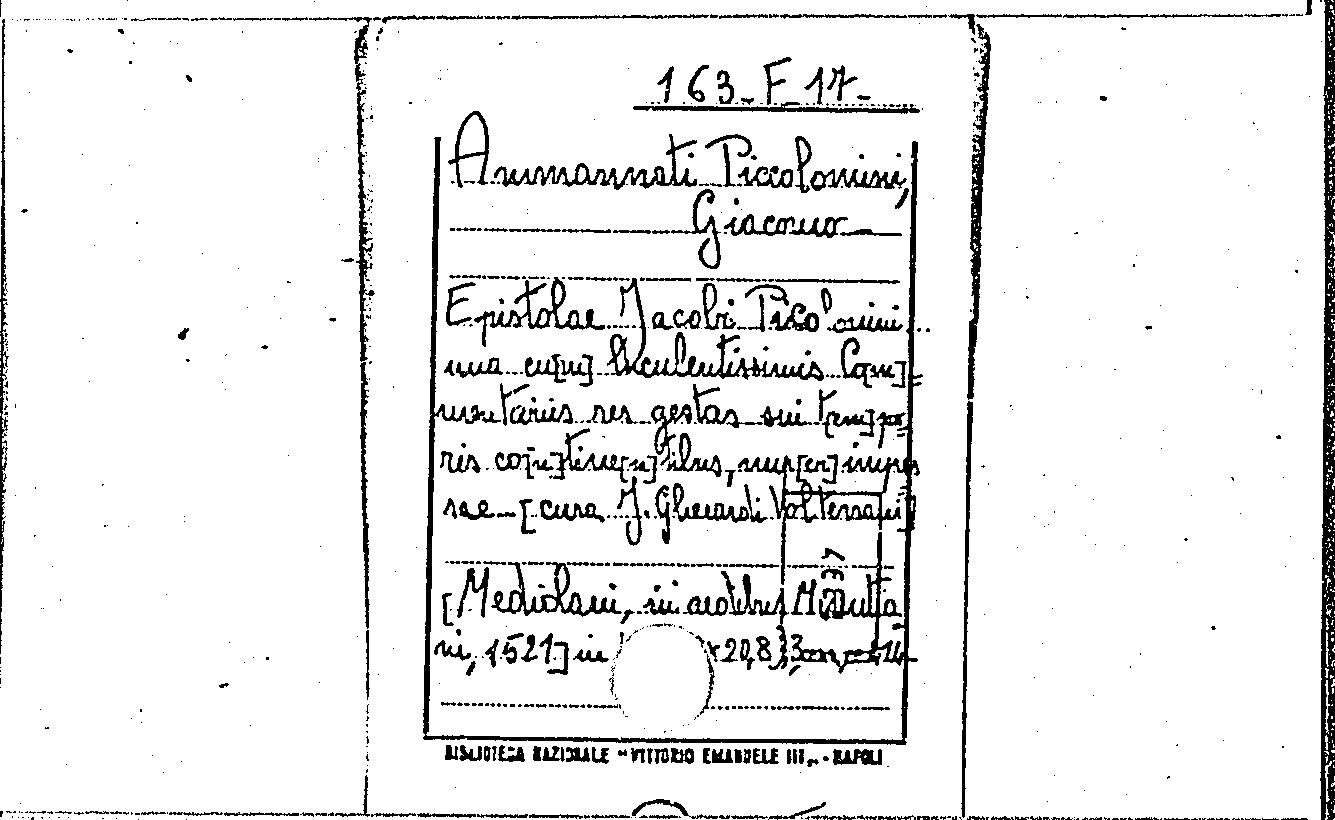 163-F 17-
Ammannati Piccolomini,
Giacomo
Epistolae Jacobi Picolomini
una cu[m] luculentissimis Co[m]=
mentariis res gestas sui t[em]po=
ris co[n]tine[n]tibus, nup[er] impres=
sae - [cura J. Gherardi Volterrani]
[Mediolani, in aedibus Minutia
ni, 1521] in 20,8
BIBLIOTECA NAZIONALE "VITTORIO EMANUELE III" - NAPOLI